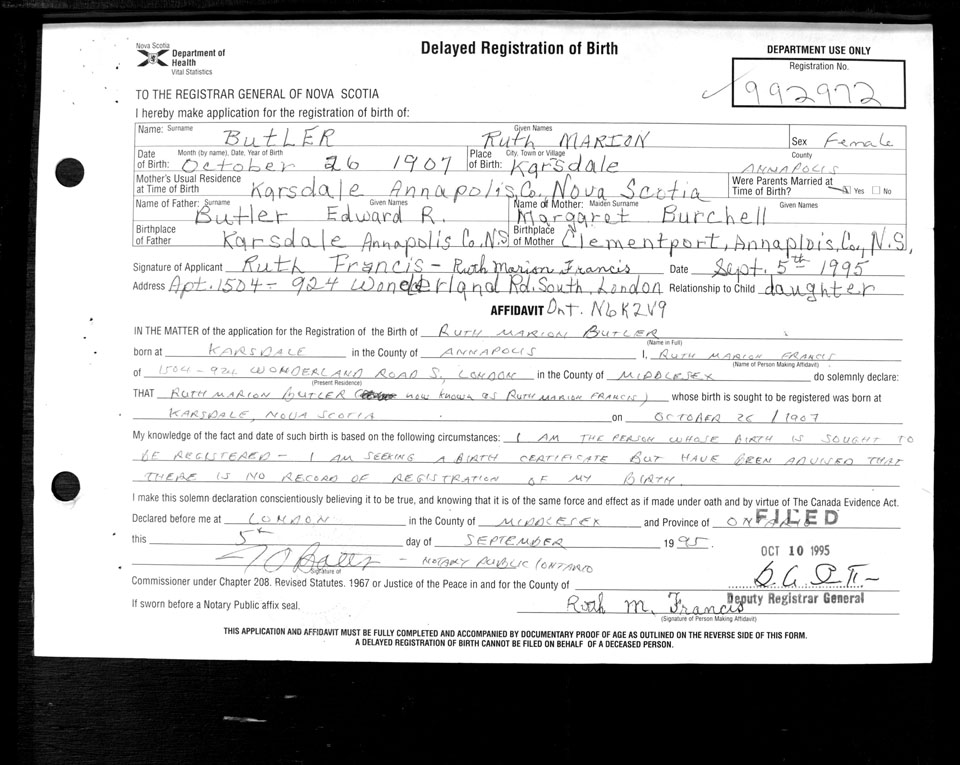 Nova Scotia
Department of
Health
Vital Statistics
Delayed Registration of Birth
DEPARTMENT USE ONLY
Registration No.
992972
TO THE REGISTRAR GENERAL OF NOVA SCOTIA
I hereby make application for the registration of birth of:
Name: Surname BUtLER Given Names Ruth MARION Sex Female
Date of Birth: Month (by name), Date, Year of Birth October 26 1907 Place of Birth: City, Town or Village Karsdale County ANNAPOLIS
Mother's Usual Residence at Time of Birth Karsdale Annapolis, Co. Nova Scotia Were Parents Married at Time of Birth? Yes No
Name of Father: Surname Given Names Butler Edward R. Name of Mother: Maiden Surname Given Names Margaret Burchell
Birthplace of Father Karsdale Annapolis Co. N.S Birthplace of Mother Clementport, Annaplois, Co., N.S,
Signature of Applicant Ruth Francis - Ruth Marion Francis Date Sept. 5th 1995
Address Apt. 1504 - 924 Wonderland Rd. South, London Relationship to Child daughter
AFFIDAVIT Ont. N6K2V9
IN THE MATTER of the application for the Registration of the Birth of RUTH MARION BUTLER
(Name in Full)
born at KARSDALE in the County of ANNAPOLIS I, RUTH MARION FRANCIS
(Name of Person Making Affidavit)
of 1504-924 WONDERLAND ROAD S, LONDON in the County of MIDDLESEX do solemnly declare:
(Present Residence)
THAT RUTH MARION BUTLER ( now known as RUTH MARION FRANCIS) whose birth is sought to be registered was born at
KARSDALE, NOVA SCOTIA on OCTOBER 26 / 1907
My knowledge of the fact and date of such birth is based on the following circumstances: I AM THE PERSON WHOSE BIRTH IS SOUGHT TO
BE REGISTERED - I AM SEEKING A BIRTH CERTIFICATE BUT HAVE BEEN ADVISED THAT
THERE IS NO RECORD OF REGISTRATION OF MY BIRTH.
I make this solemn declaration conscientiously believing it to be true, and knowing that it is of the same force and effect as if made under oath and by virtue of The Canada Evidence Act.
Declared before me at LONDON in the County of MIDDLESEX and Province of ONTARIO
FILED
this 5th day of SEPTEMBER 1995.
OCT 10 1995
- NOTARY PUBLIC ONTARIO
Signature of
Commissioner under Chapter 208. Revised Statutes. 1967 or Justice of the Peace in and for the County of
Deputy Registrar General
If sworn before a Notary Public affix seal. Ruth M. Francis
(Signature of Person Making Affidavit)
THIS APPLICATION AND AFFIDAVIT MUST BE FULLY COMPLETED AND ACCOMPANIED BY DOCUMENTARY PROOF OF AGE AS OUTLINED ON THE REVERSE SIDE OF THIS FORM.
A DELAYED REGISTRATION OF BIRTH CANNOT BE FILED ON BEHALF OF A DECEASED PERSON.